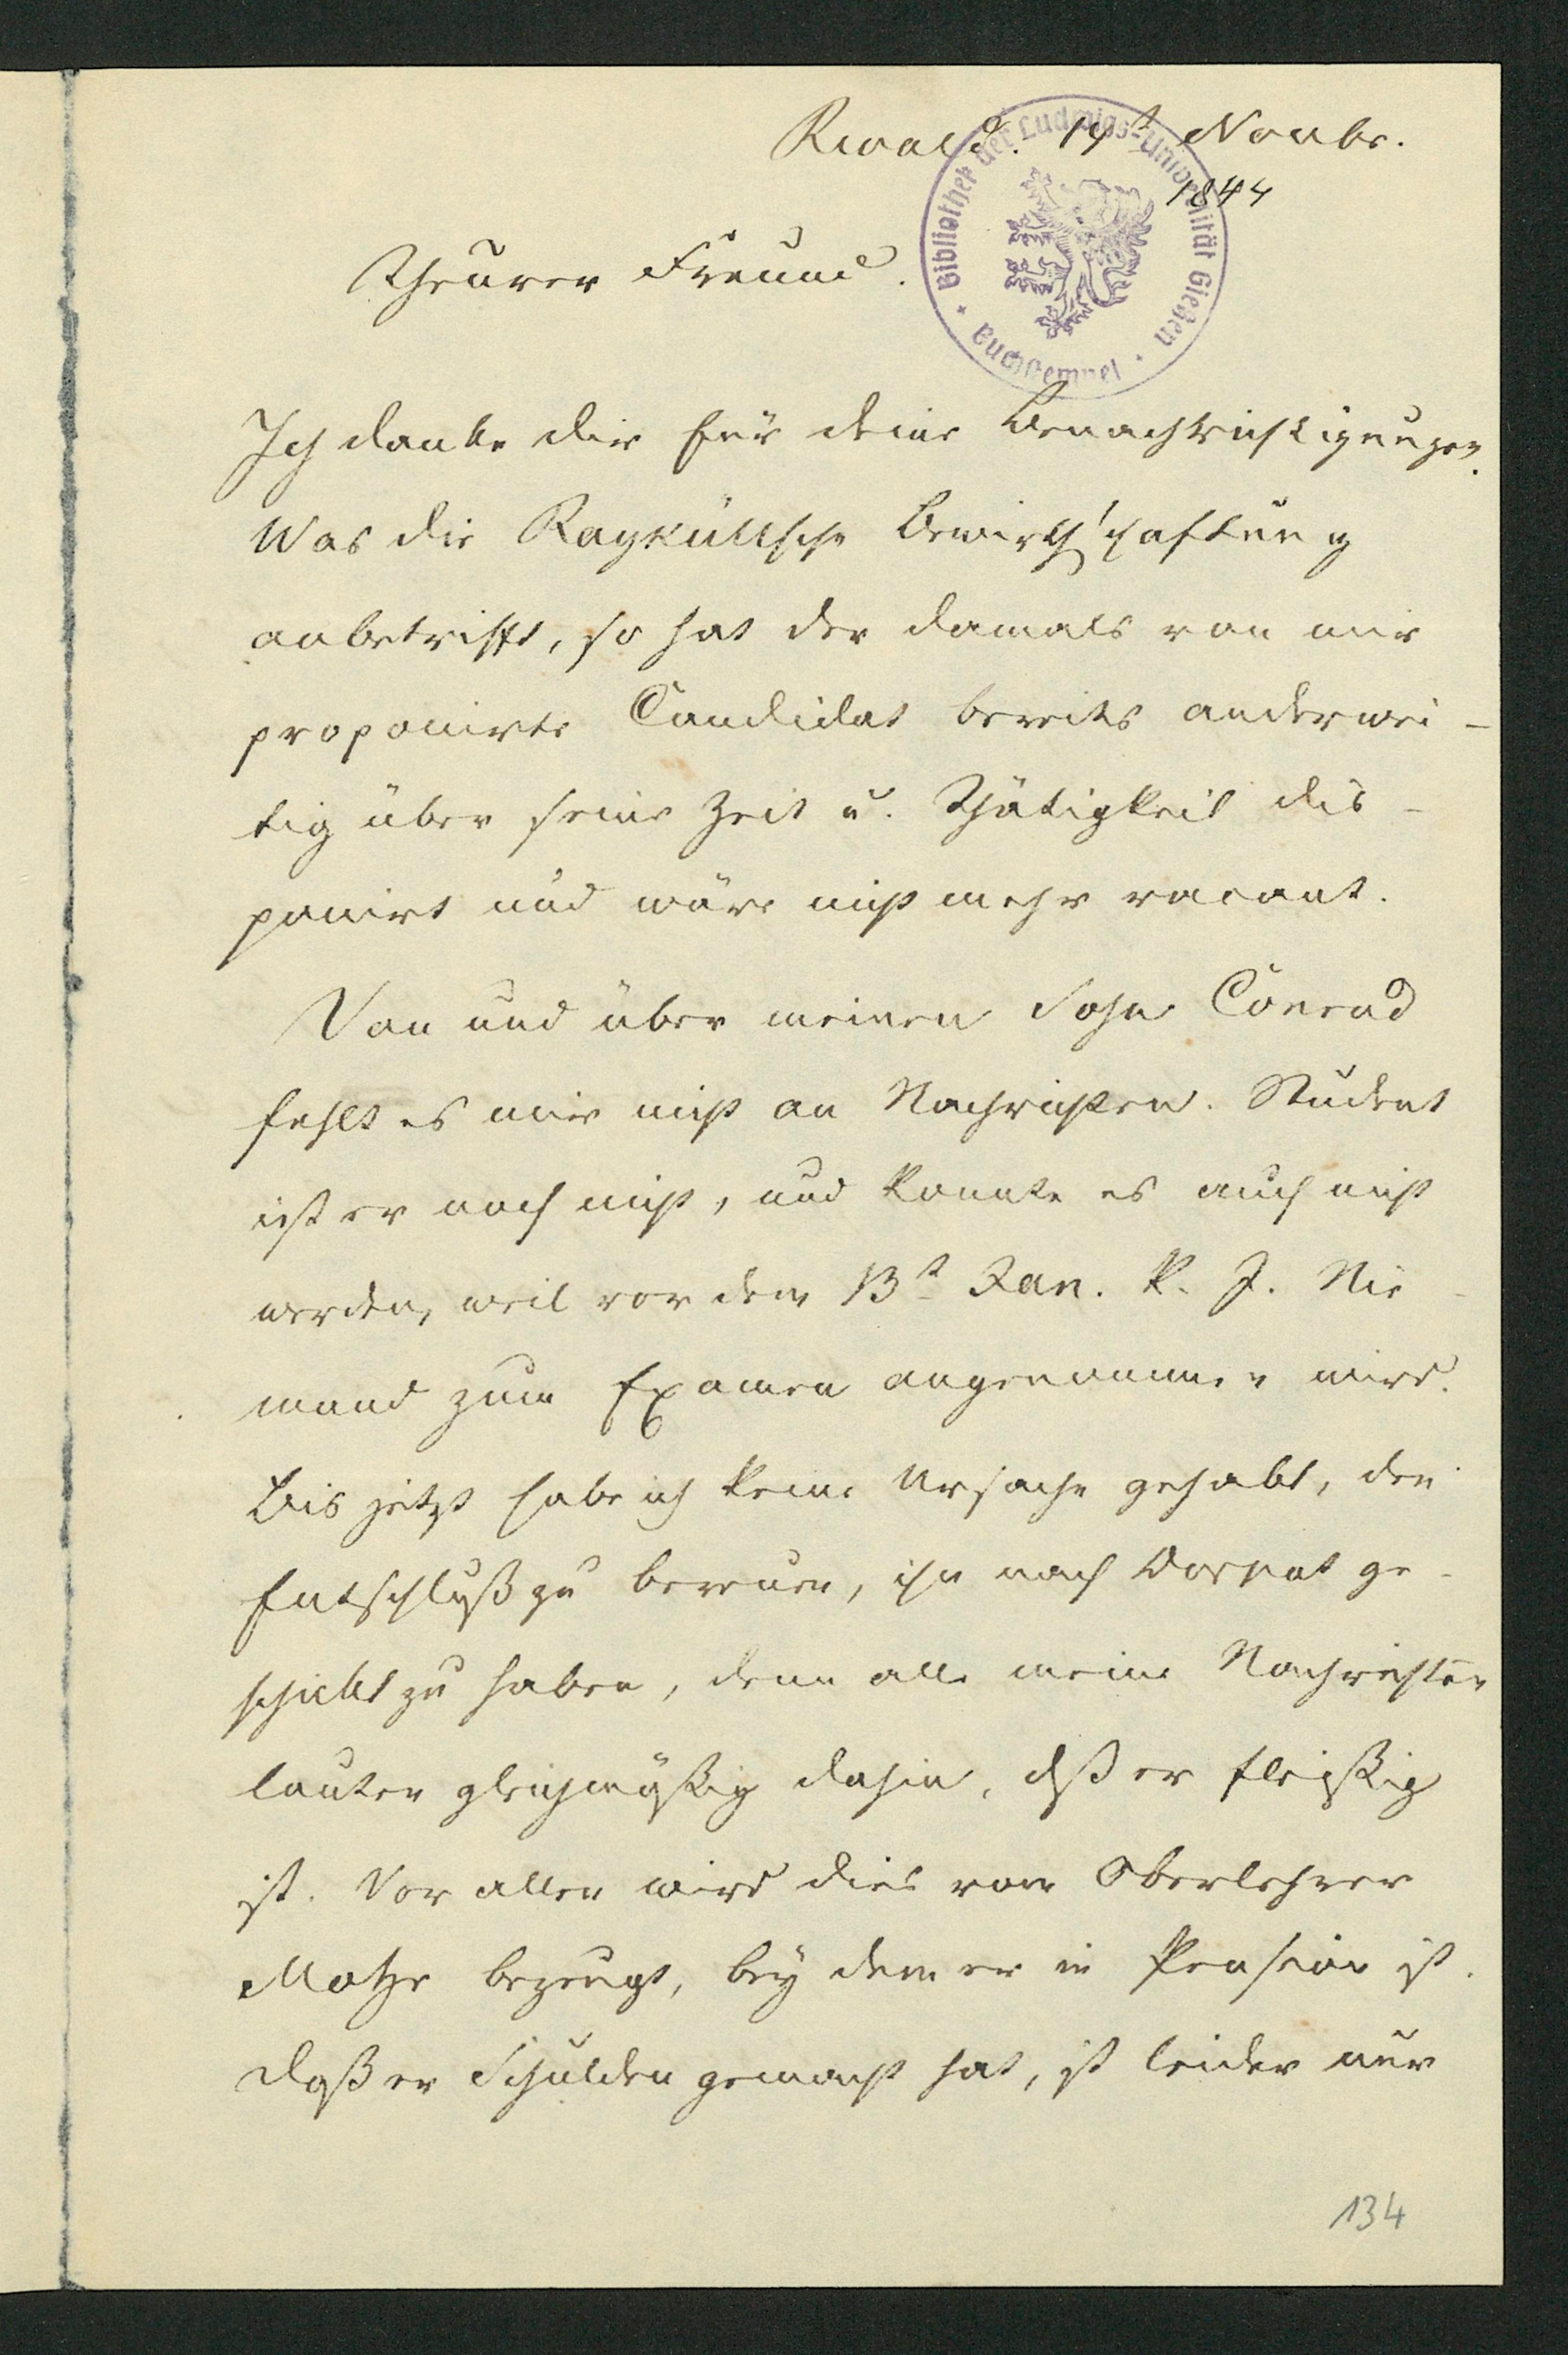 Rwald. 14t Novbr.
1844
Bibliothek der Ludwigs-Universität Gießen
Buchstempel
Theurer Freund.
Ich danke dir für deine Benachrichtigungen.
Was die Raykülsche Bewirthschaftung
anbetrifft, so hat der damals von mir
proponirte Candidat bereits anderwei-
tig über seine Zeit u. Thätigkeit dis-
ponirt und wäre nicht mehr vacant.
Von und über meinen Sohn Conrad
fehlt es mir nicht an Nachrichten. Student
ist er noch nicht, und konnte es auch nicht
werden, weil vor dem 13t Jan. k. J. Nie-
mand zum Examen angenommen wird.
Bis jetzt habe ich keine Ursache gehabt, den
Entschluß zu bereuen, ihn nach Dorpat ge-
schickt zu haben, denn alle meine Nachrichten
lauten gleichmäßig dahin, dß er fleißig
ist. Vor allen wird dies vom Oberlehrer
Motze bezeugt, bey dem er in Pension ist.
Daß er Schulden gemacht hat, ist leider nur
134